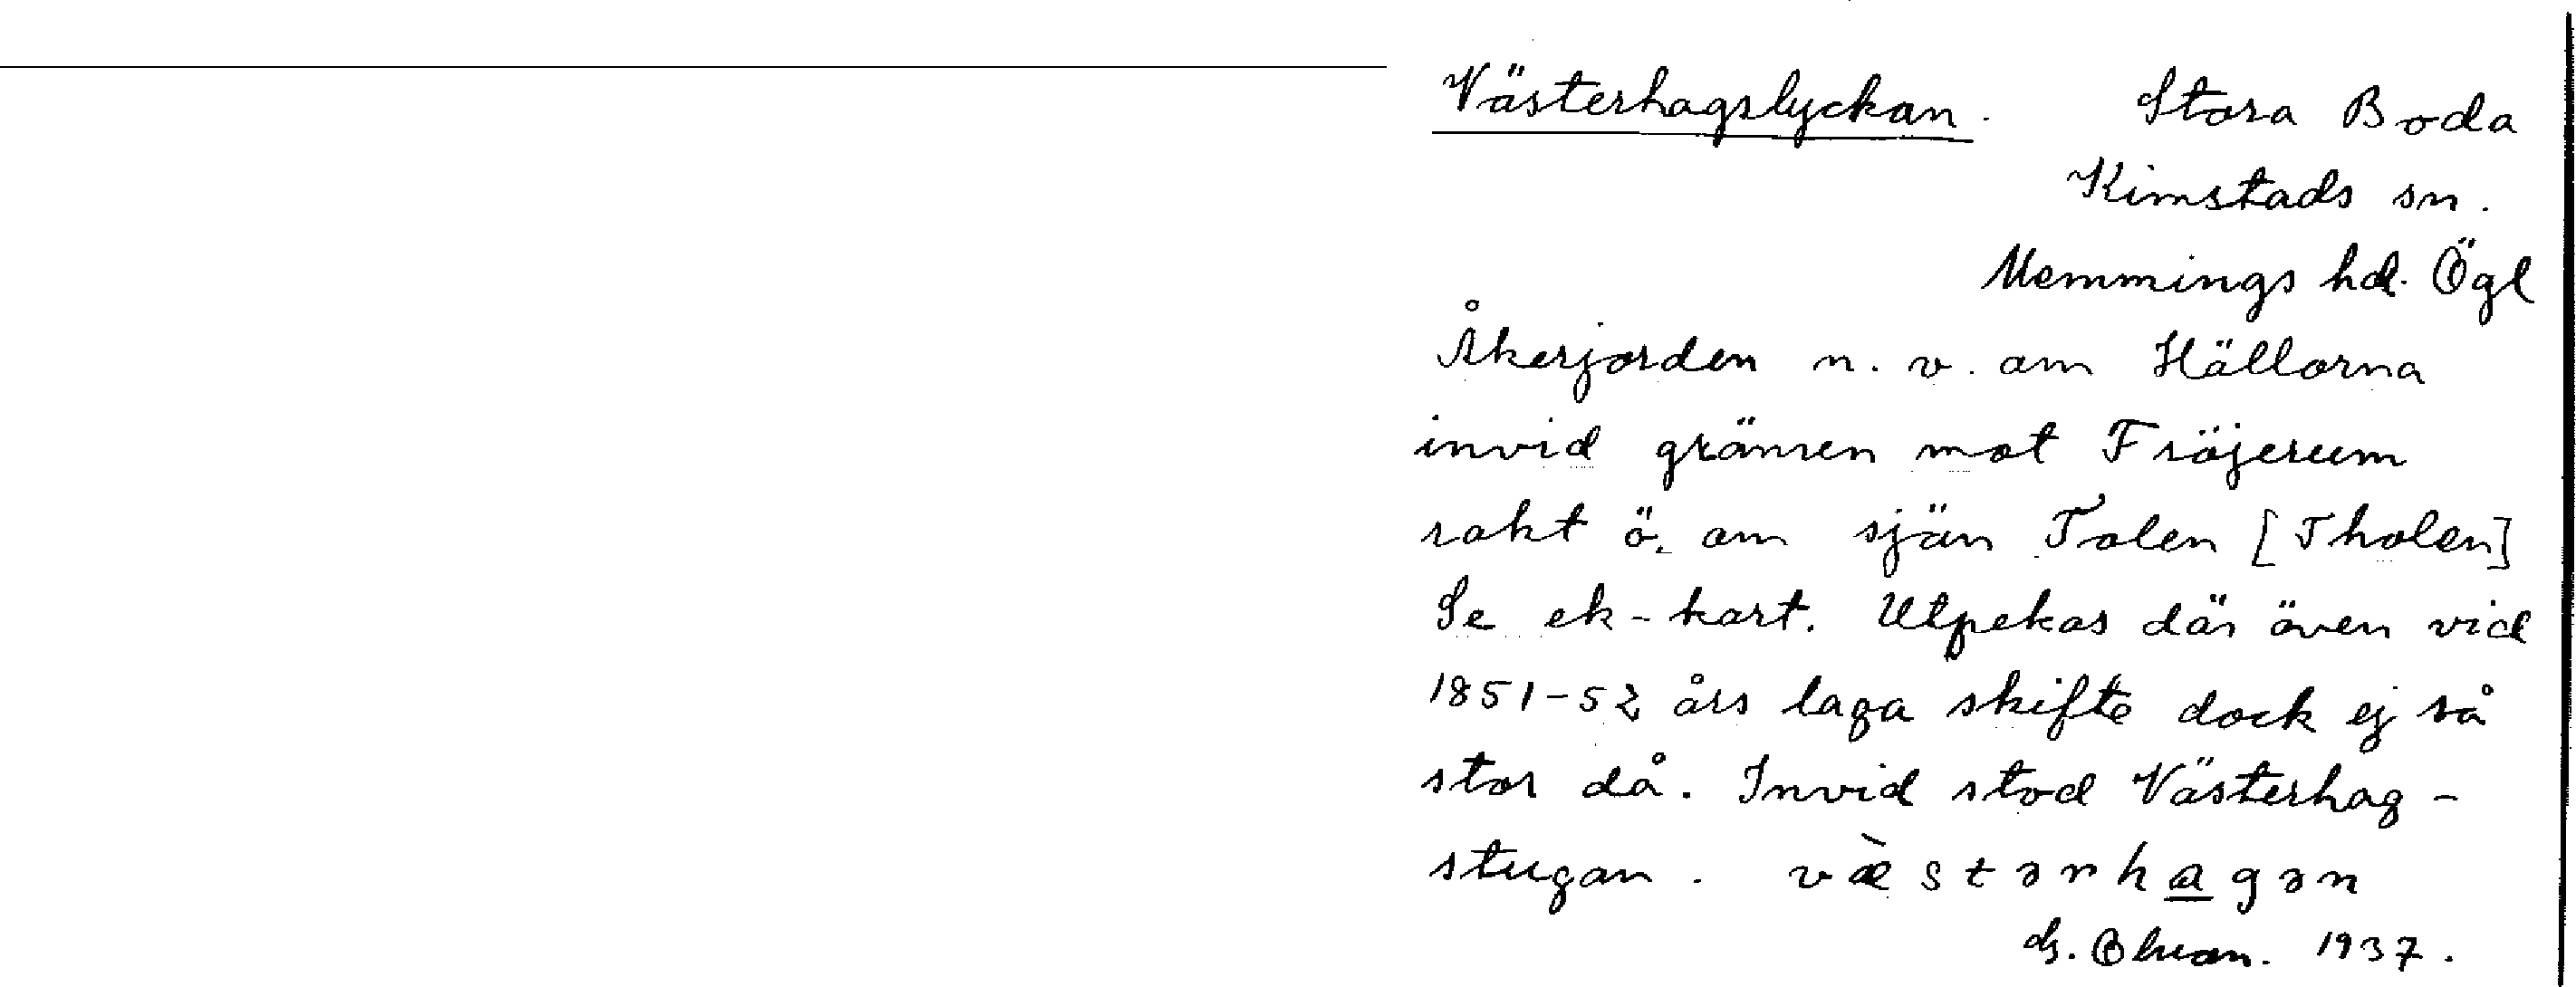 Västerhagslyckan. Stora Boda
Kimstads sn.
Memmings hd. Ögl
Åkerjorden n. v. om Hällorna
invid gränsen mot Fröjerum
rakt ö. om sjön Tolen [Tholen]
Se ek-kart. Utpekas där även vid
1851-52 års laga skifte dock ej så
stor då. Invid stod Västerhag-
stugan. væ̀stərhagən
1937.